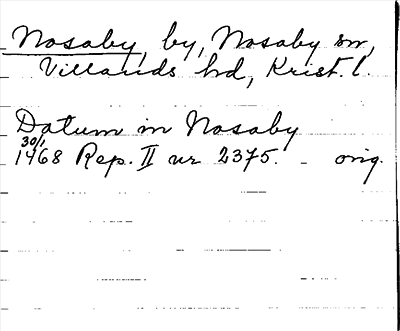 Nosaby, by, Nosaby sn,
Villands hd, Krist. l.
Datum in Nosaby
30/1
1468 Rep. II nr 2375. - orig.